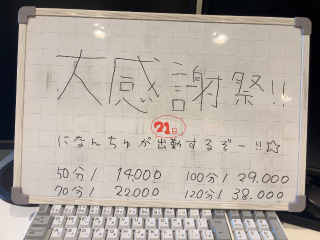 大感謝祭!!
21日
になんちゅが出動するぞー!!☆
50分/ 14.000 100分/ 29.000
70分/ 22.000 120分/ 38.000